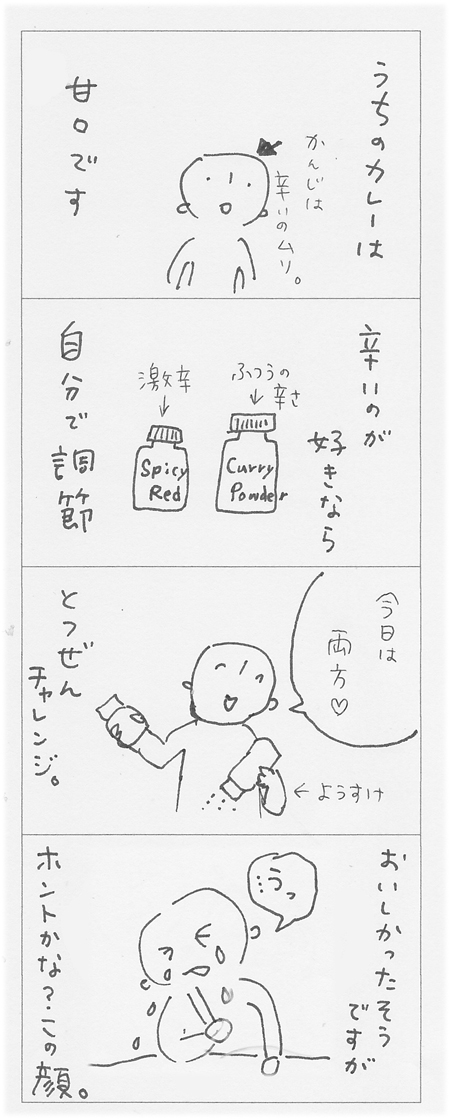 うちのカレーは
かんじは
辛いのムリ。
甘口です
辛いのが
好きなら
ふつうの
辛さ
Curry
Powder
激辛
Spicy
Red
自分で調節
今日は
両方♡
←ようすけ
とつぜん
チャレンジ。
おいしかったそう
ですが
…うっ
ホントかな？この顔。